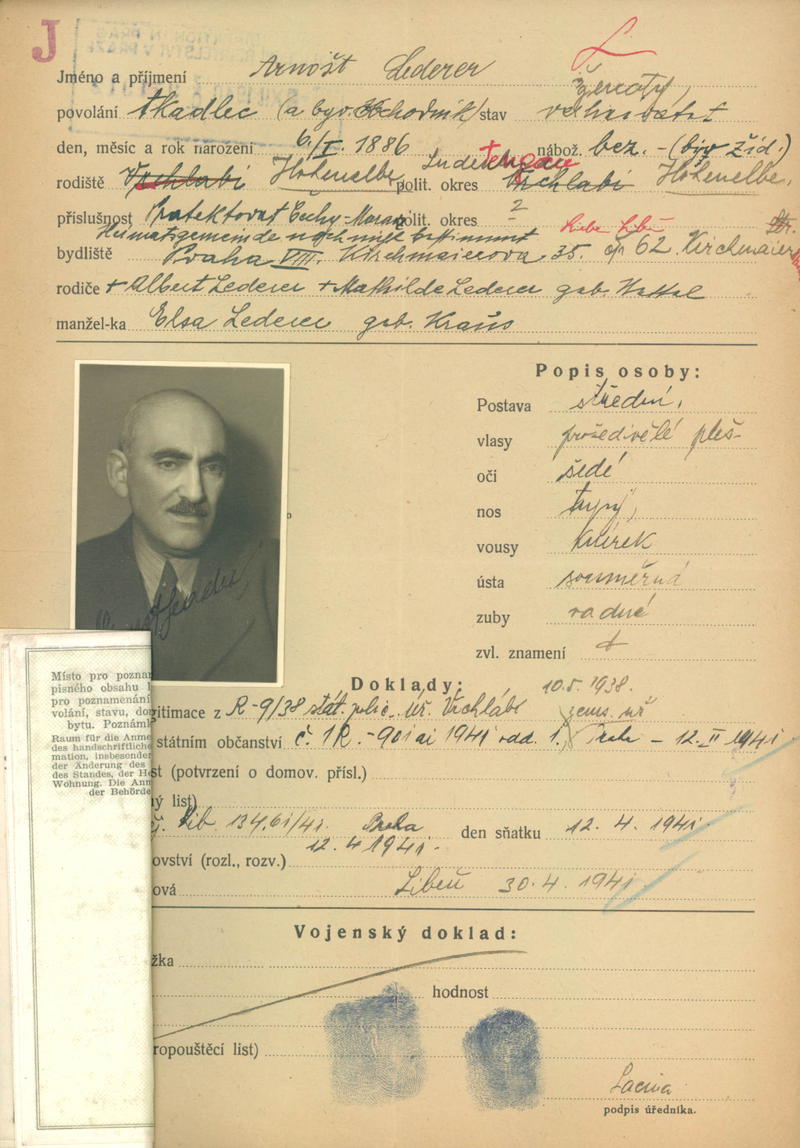 J
Jméno a příjmení Arnošt Lederer
ženatý,
povolání tkadlec (a býv. obchodník) stav
den, měsíc a rok narození 6./I. 1886 nábož. bez. - (býv. žid.)
rodiště Vrchlabí Hohenelbe, polit. okres Vrchlabí Hohenelbe,
příslušnost Protektorat Čechy-Morava polit. okres ?
Heimatgemeinde noch nicht bestimmt
bydliště Praha VIII. Kirchmaierova 35. čp 62. Kirchmaier Str.
rodiče + Albert Lederer + Mathilde Lederer geb.
manžel-ka Elsa Lederer geb. Kraus
Popis osoby:
Postava střední,
vlasy prošedivělé pleš-
oči šedé
nos tupý,
vousy knírek
ústa souměrná
zuby řadné
zvl. znamení
Doklady: 10.5. 1938.
gitimace z R-9/38 stát. polic. úř. Vrchlabí
státním občanství č. 1R.-901 ai 1941 - 12. II 1941
st (potvrzení o domov. přísl.)
ý list)
Lib 134,61/41 Praha den sňatku 12. 4. 1941
12. 4 1941.
ovství (rozl., rozv.)
ová Libeň 30. 4. 1941
Místo pro pozna
písného obsahu l
pro poznamenání
volání, stavu, do
bytu. Poznám
Raum für die Anme
des handschriftliche
mation, insbesonder
der Änderung des
des Standes, der He
Wohnung. Die Ann
der Behörde
Vojenský doklad:
žka
hodnost
ropouštěcí list)
Lacina
podpis úředníka.